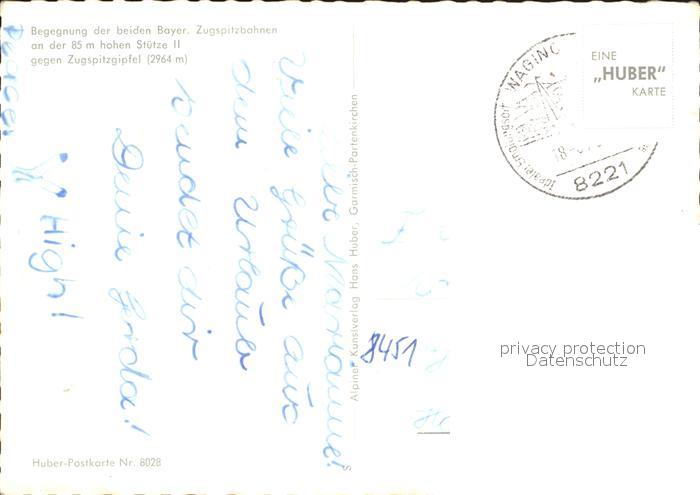 Begegnung der beiden Bayer. Zugspitzbahnen
an der 85 m hohen Stütze II
gegen Zugspitzgipfel (2964 m)
EINE
„HUBER"
KARTE
WAGING
8221
Marianne!
Viele Grüße aus
dem Urlaub
sendet dir
Deine Gerda!
High!
Alpiner Kunstverlag Hans Huber, Garmisch-Partenkirchen
8451
privacy protection
Datenschutz
Huber-Postkarte Nr. 8028